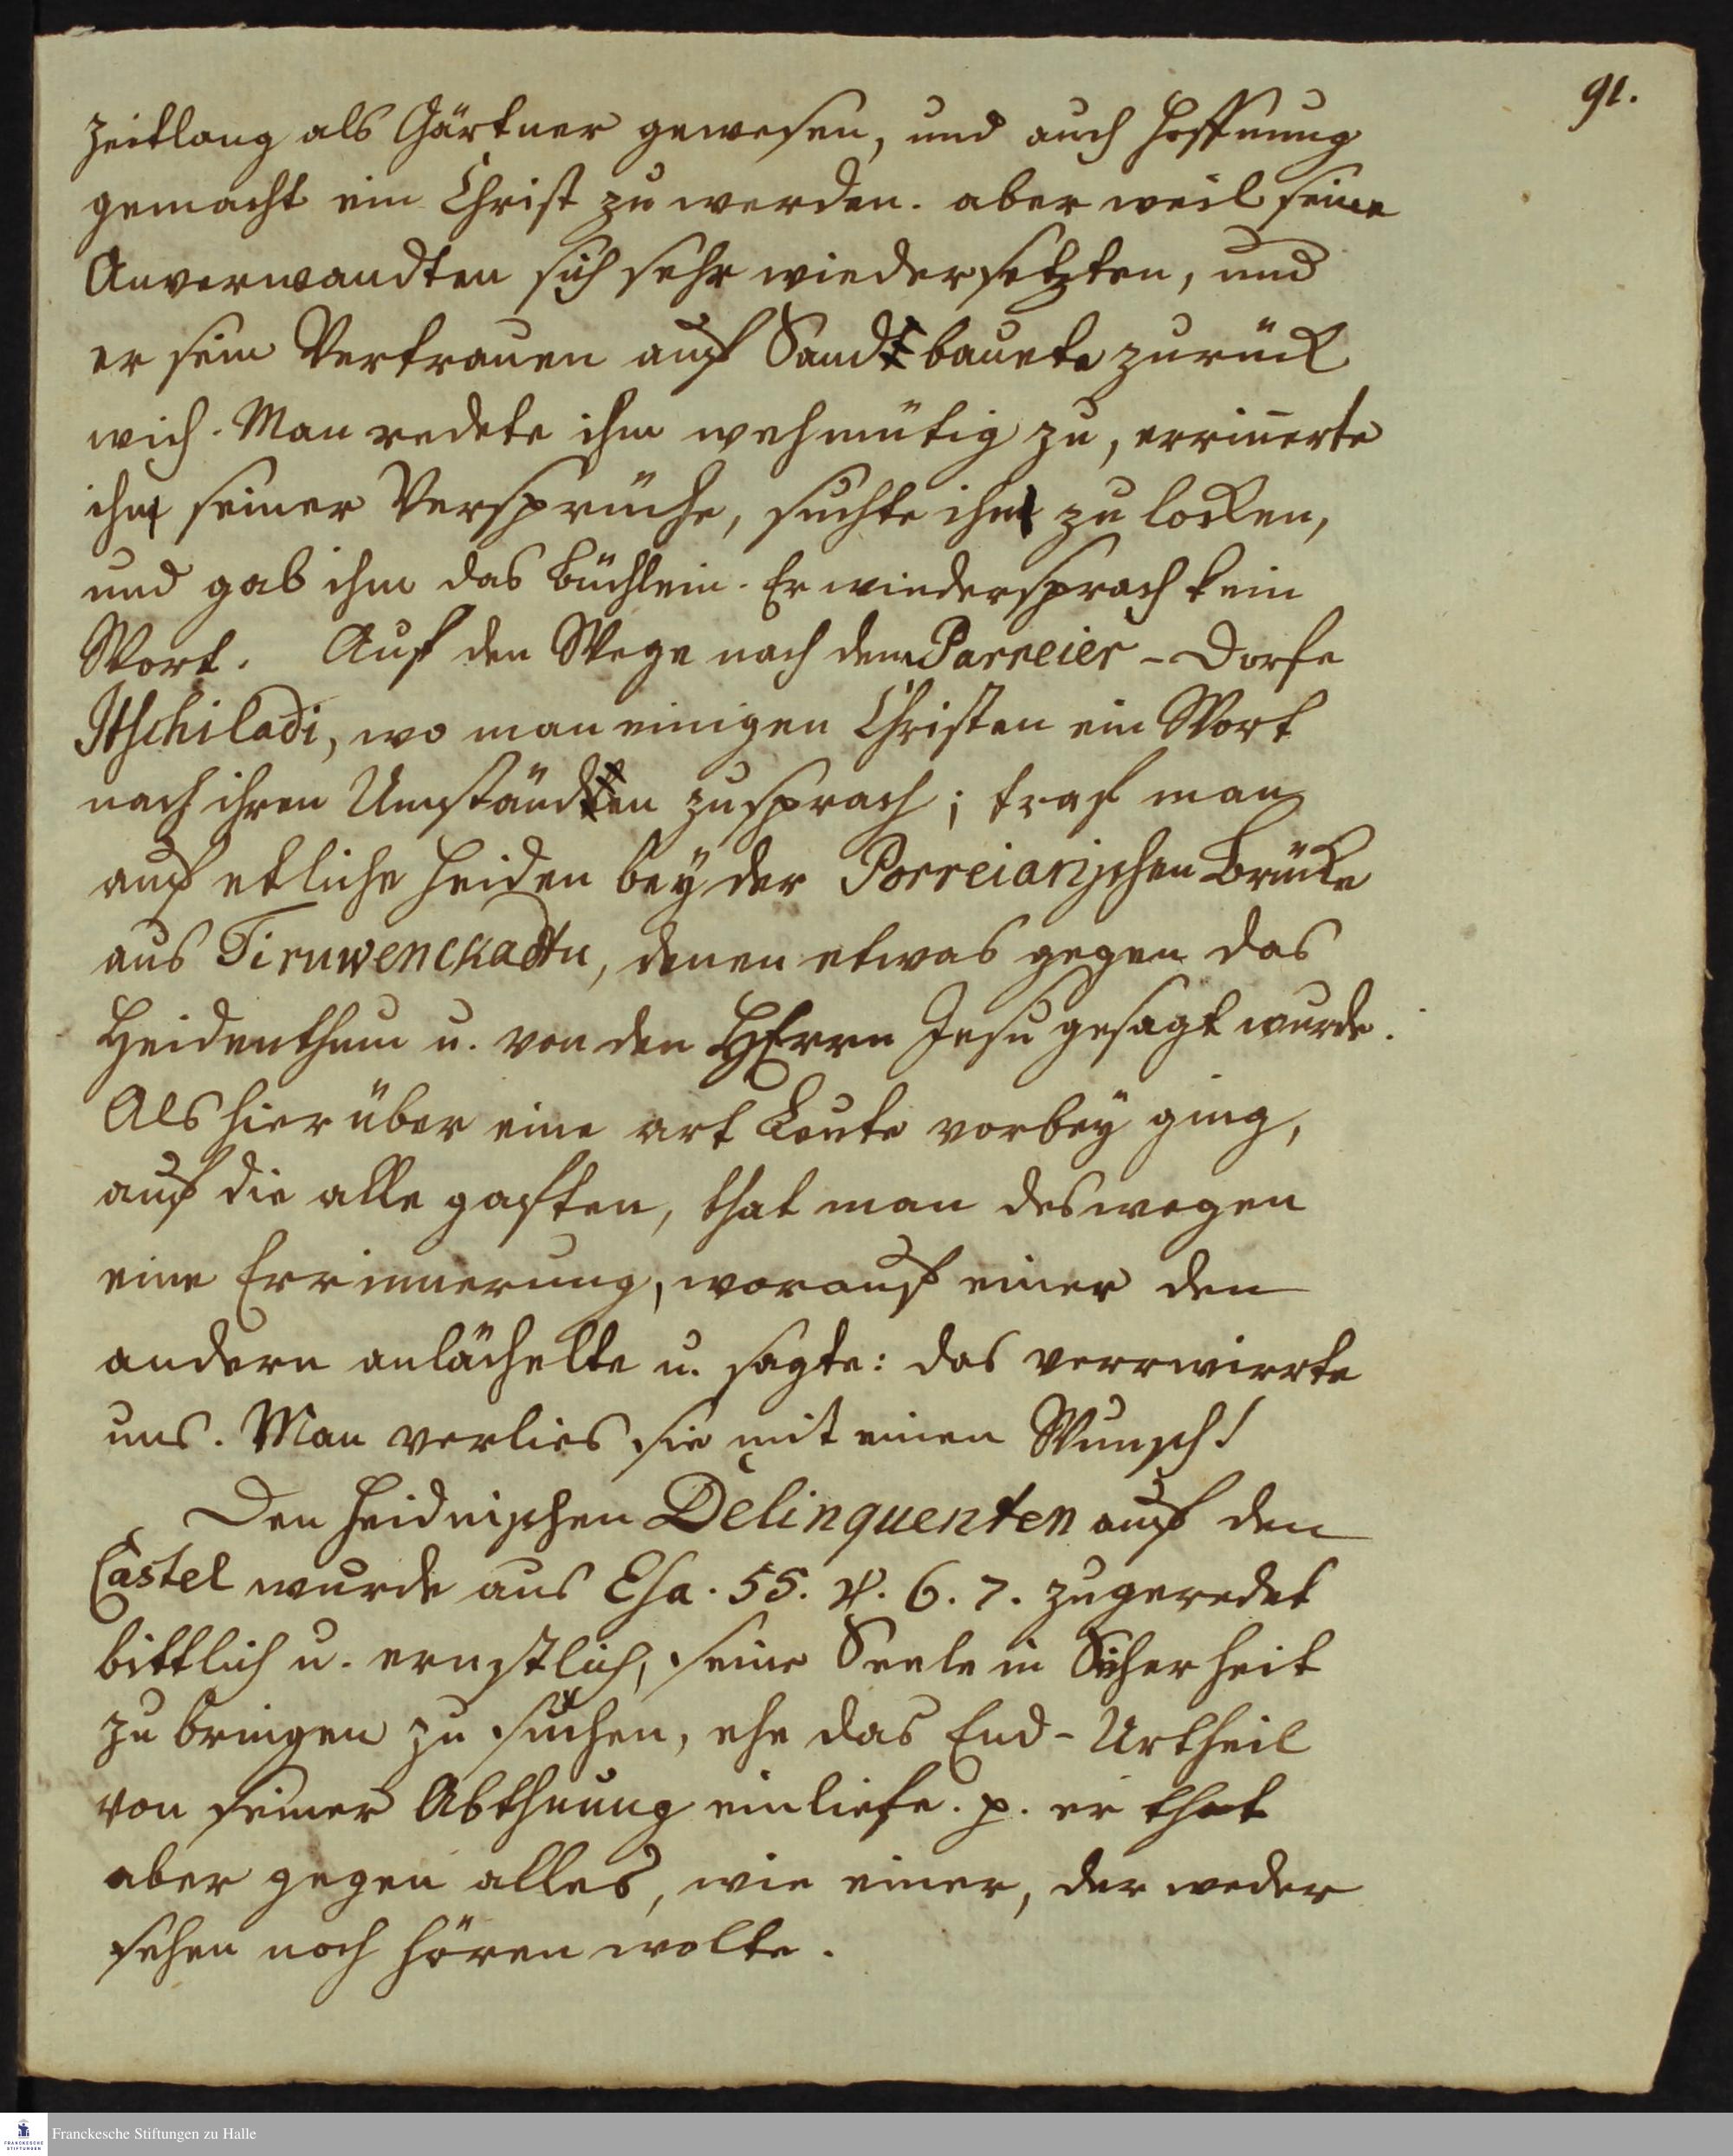 91.
zeitlang als Gärtner gewesen, und auch Hoffnung
gemacht ein Christ zu werden. aber weil seine
Anverwandten sich sehr wiedersetzten, und
er sein Vertrauen auf Sand bauete zurück
wich. Man redete ihm wehmütig zu, erriñerte
ihn seiner Versprüche, suchte ihn zu locken,
und gab ihm das Büchlein. Er wiedersprach kein
Wort. Auf den Wege nach dem Parreier-Dorfe
Itschiladi, wo man einigen Christen ein Wort
nach ihren Umständen zusprach; traf man
auf etliche Heiden bey der Porreiarischen Brücke
aus Tiruwenckadtu, denen etwas gegen das
Heidenthum u. von den HErrn Jesu gesagt wurde.
Als hierüber eine art Leute vorbey ging,
auf die alle gafften, that man deswegen
eine Errinnerung, worauf einer den
andern anlächelte u. sagte: das verwirrte
uns. Man verlies sie mit einen Wunsch!
Den heidnischen Delinquenten auf den
Castel wurde aus Esa. 55. v. 6. 7. zugeredet
bittlich u. ernstlich, seine Seele in Sicherheit
zu bringen zu suchen, ehe das End-Urtheil
von seiner Abthuung einliefe. p. er that
aber gegen alles, wie einer, der weder
sehen noch hören wolte.
Franckesche Stiftungen zu Halle